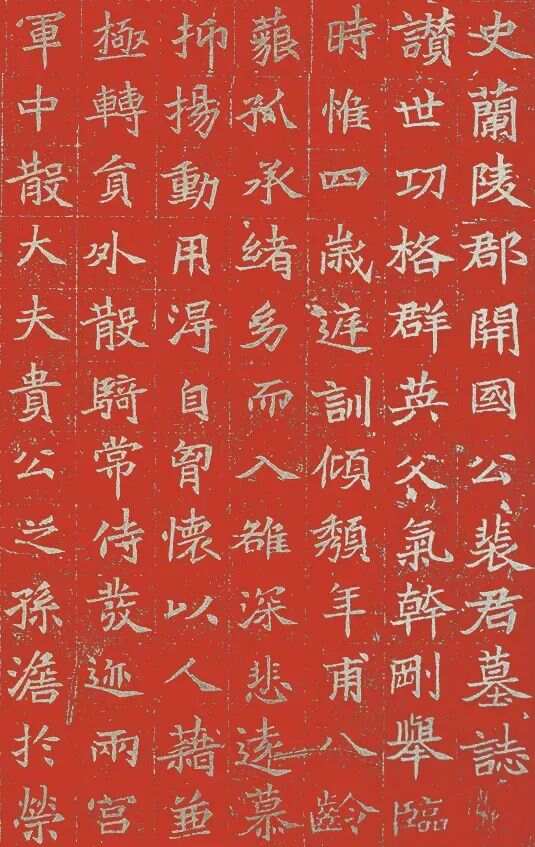 史蘭陵郡開國公裴君墓誌
讃世功格群英父氣幹剛舉臨
時惟四歲遊訓傾頽年甫八齡
藐孤承緒幼而入雒深悲遠慕
抑揚動用淂自胷懷以人藉並
極轉貟外散騎常侍發迹兩宮
軍中散大夫貴公之孫澹於榮